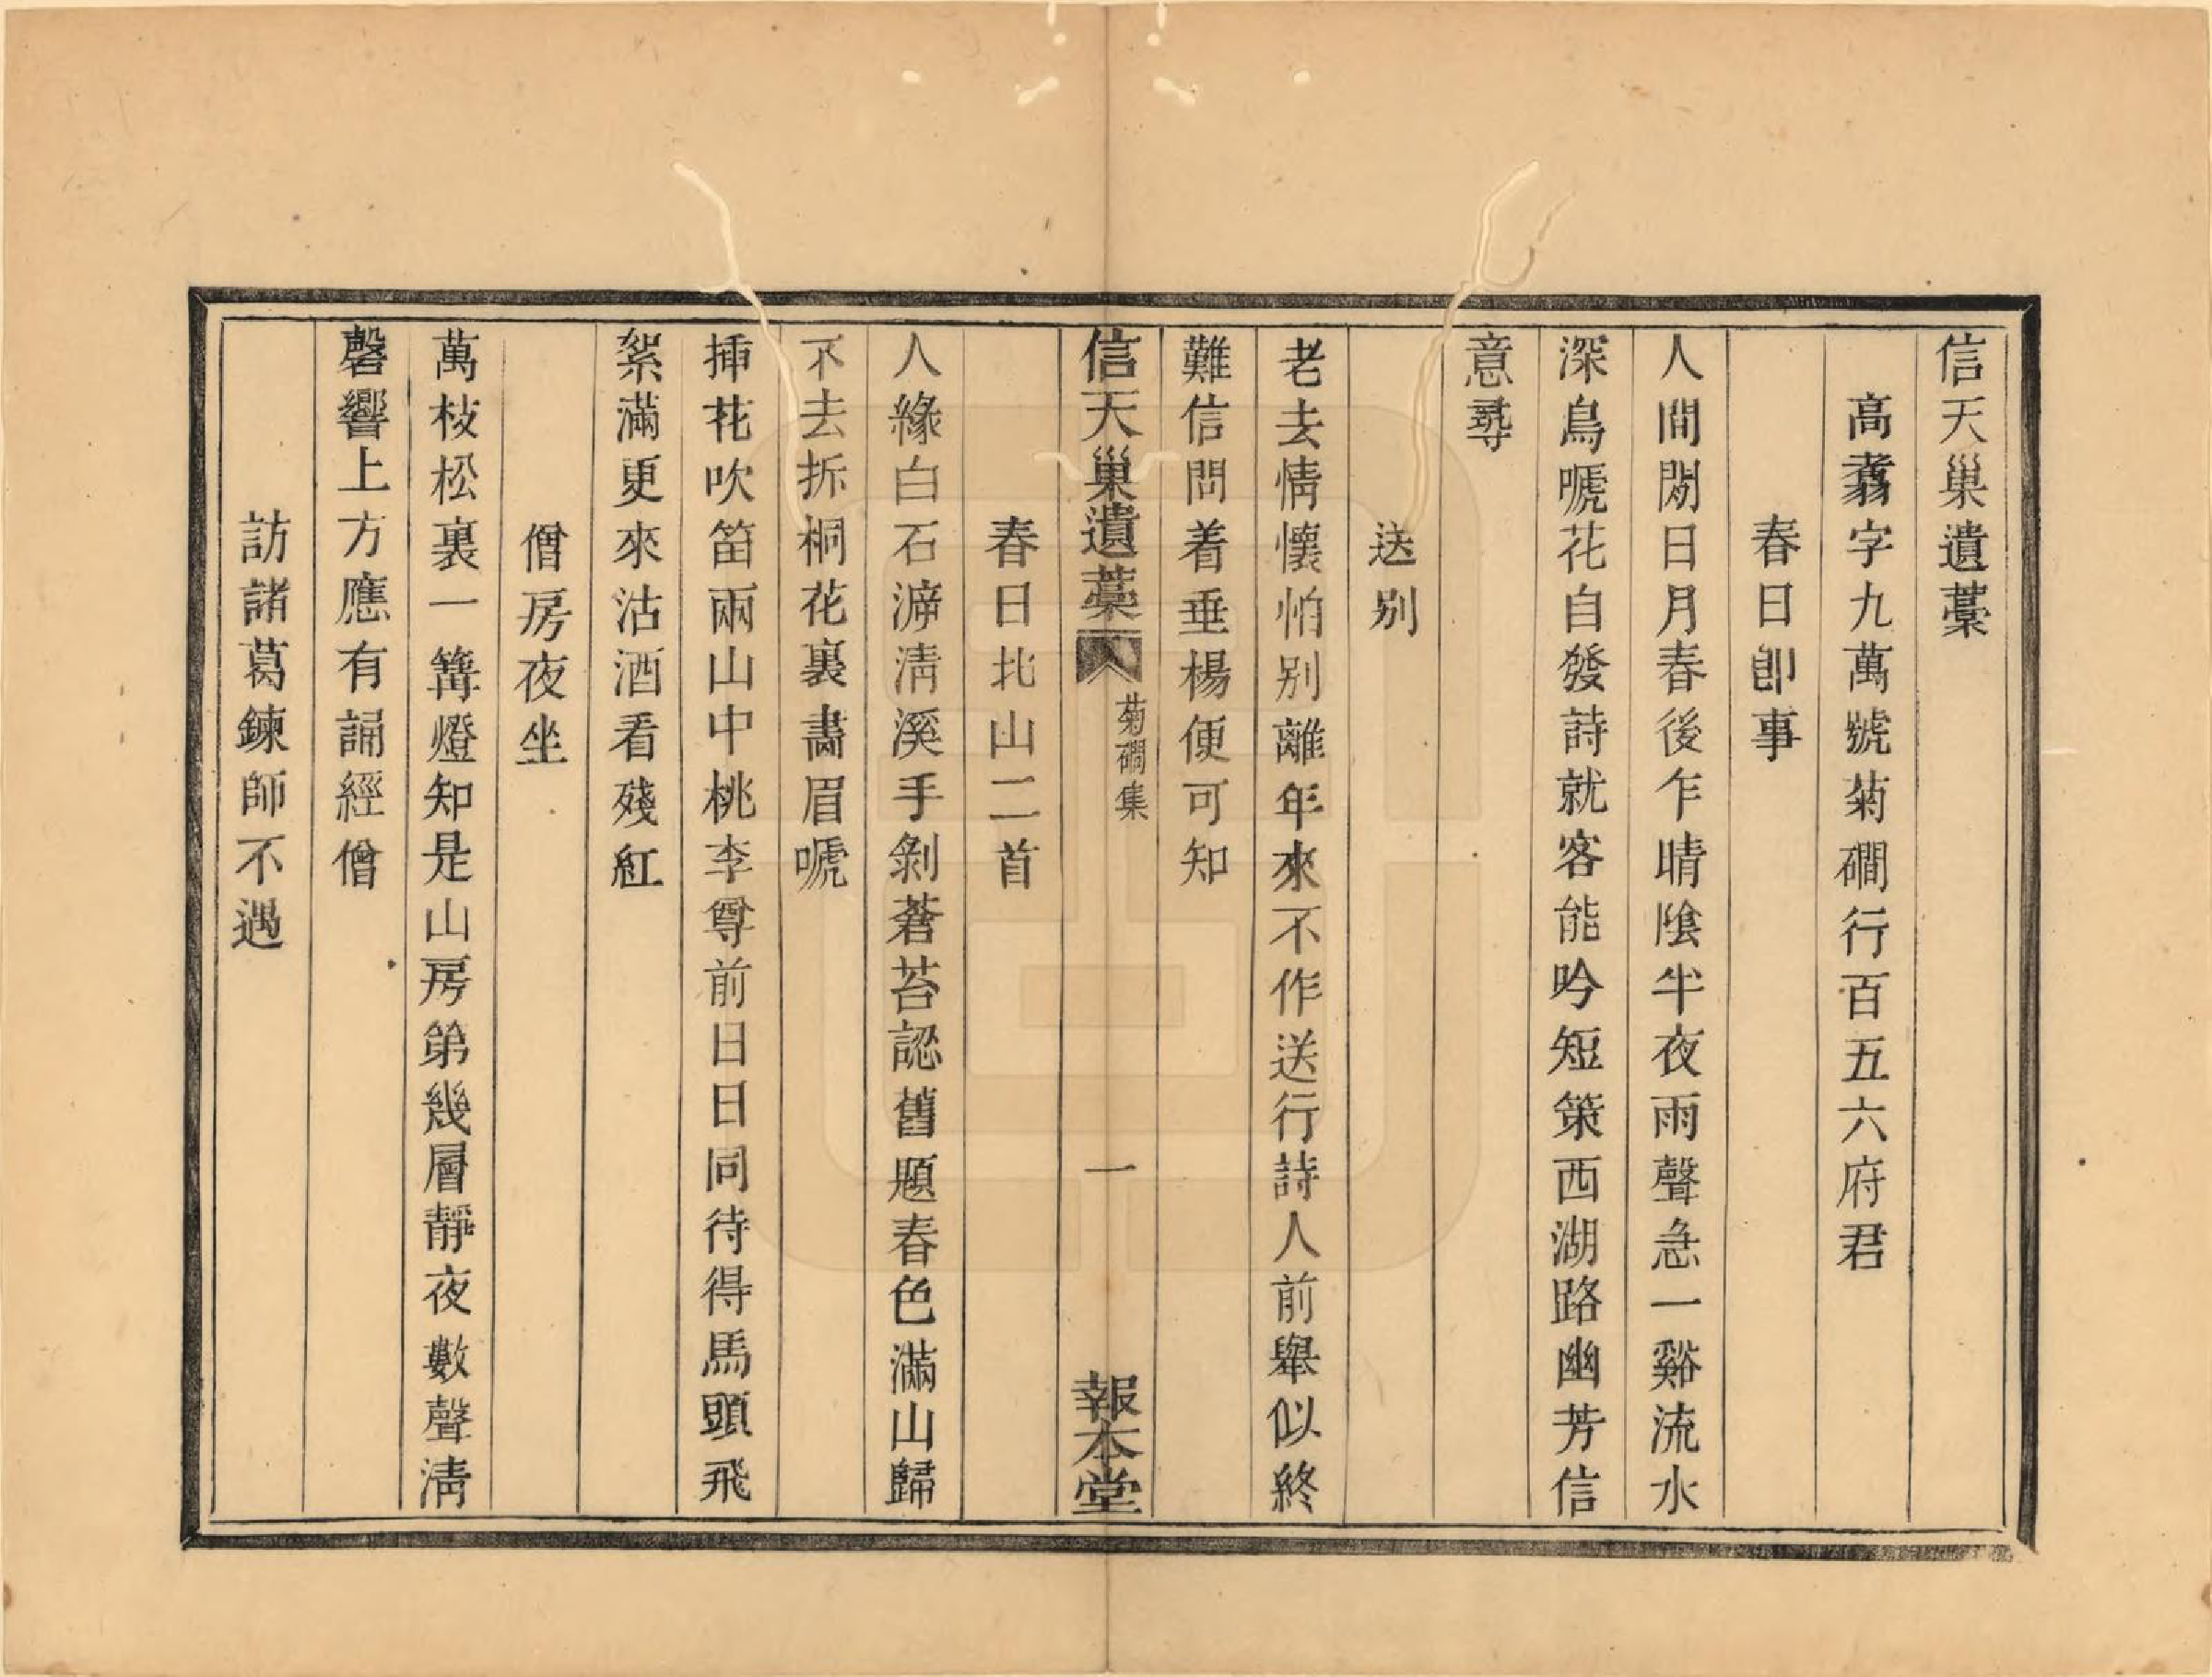 信天巢遺藁
高翥字九萬號菊磵行百五六府君
春日卽事
人間閒日月春後乍晴陰半夜雨聲急一谿流水
深鳥嗁花自發詩就客能吟短策西湖路幽芳信
意尋
送别
老去情懷怕别離年來不作送行詩人前舉似終
難信問着垂楊便可知
信天巢遺藁
菊磵集
一
報本堂
春日北山二首
人緣白石漈淸溪手剝蒼苔認舊題春色滿山歸
不去拆桐花裏畵眉嗁
揷花吹笛兩山中桃李尊前日日同待得馬頭飛
絮滿更來沽酒看殘紅
僧房夜坐
萬枝松裏一篝燈知是山房第幾層靜夜數聲淸
磬響上方應有誦經僧
訪諸葛鍊師不遇